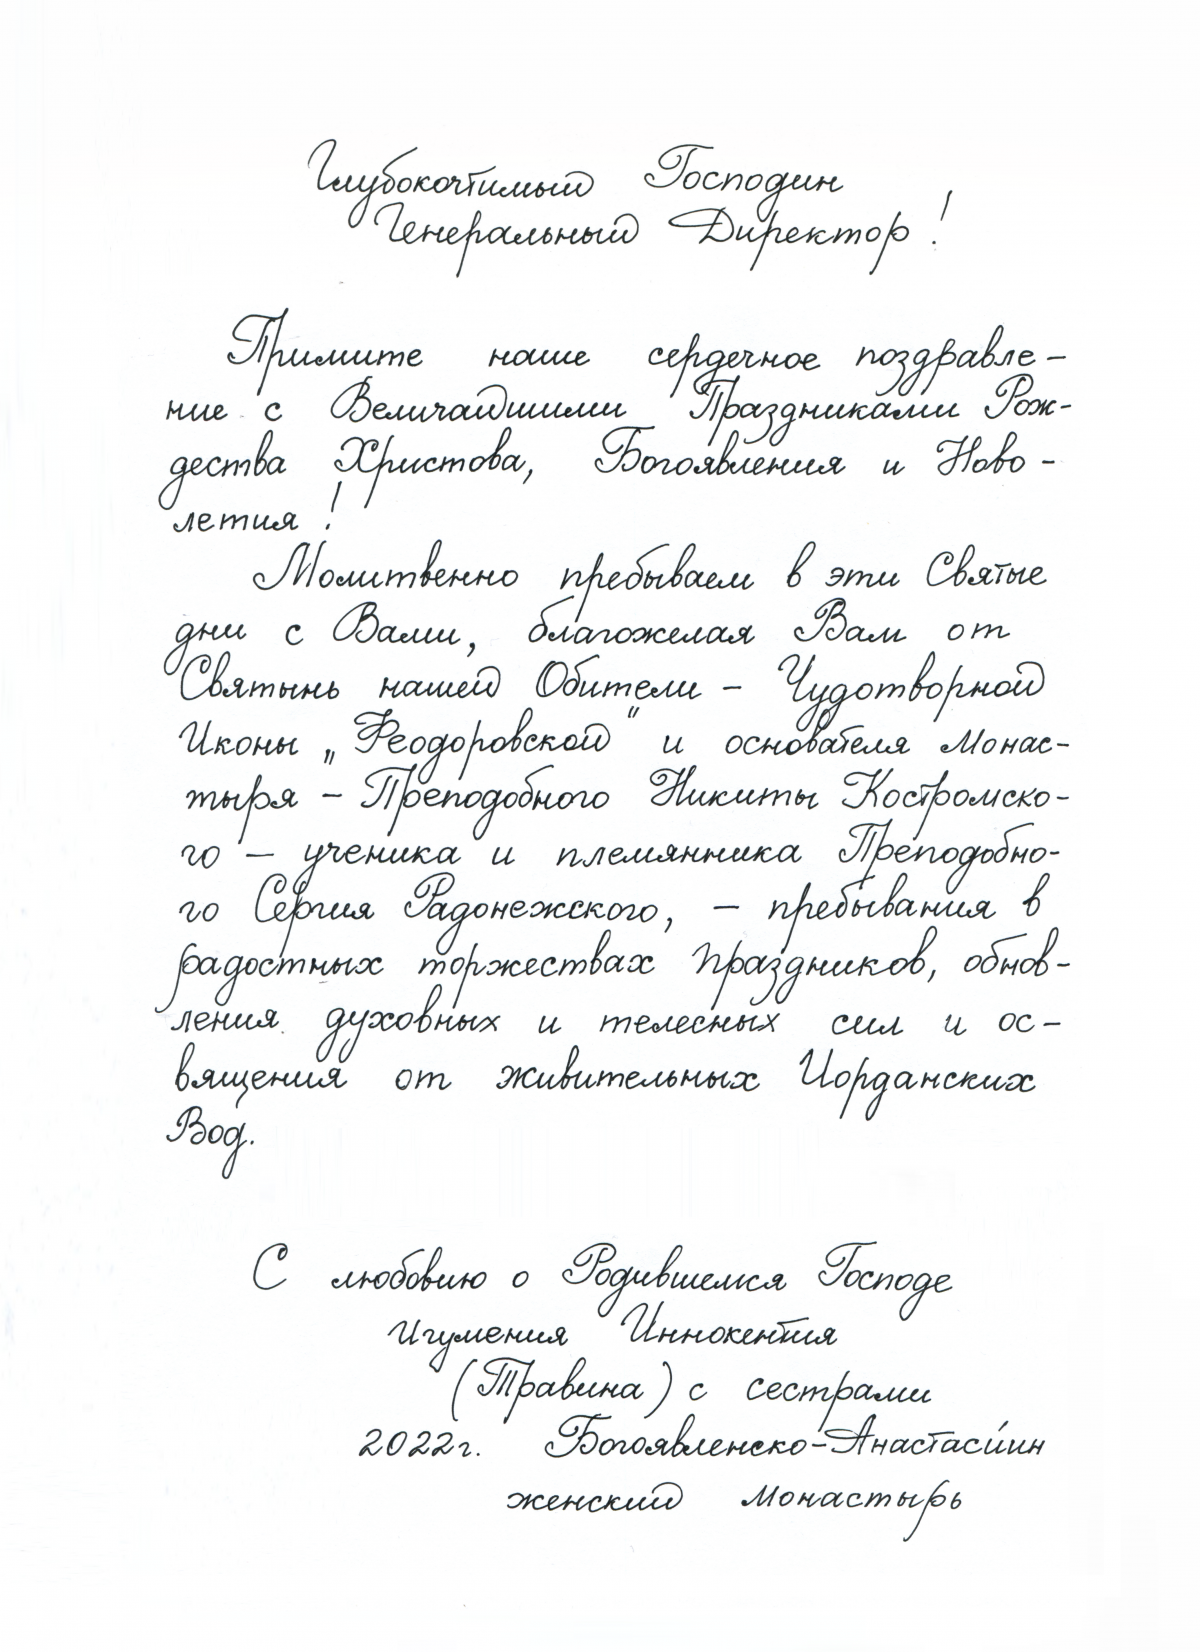 Глубокочтимый Господин
Генеральный Директор!
Примите наше сердечное поздравле-
ние с Величайшими Праздниками Рож-
дества Христова, Богоявления и Ново-
летия!
Молитвенно пребываем в эти Святые
дни с Вами, благожелая Вам от
Святынь нашей Обители – Чудотворной
Иконы „Феодоровской" и основателя Монас-
тыря – Преподобного Никиты Костромско-
го – ученика и племянника Преподобно-
го Сергия Радонежского, – пребывания в
радостных торжествах праздников, обнов-
ления духовных и телесных сил и ос-
вящения от живительных Иорданских
Вод.
С любовию о Родившемся Господе
Игумения Иннокентия
(Травина) с сестрами
2022г. Богоявленско-Анастаси́ин
женский монастырь